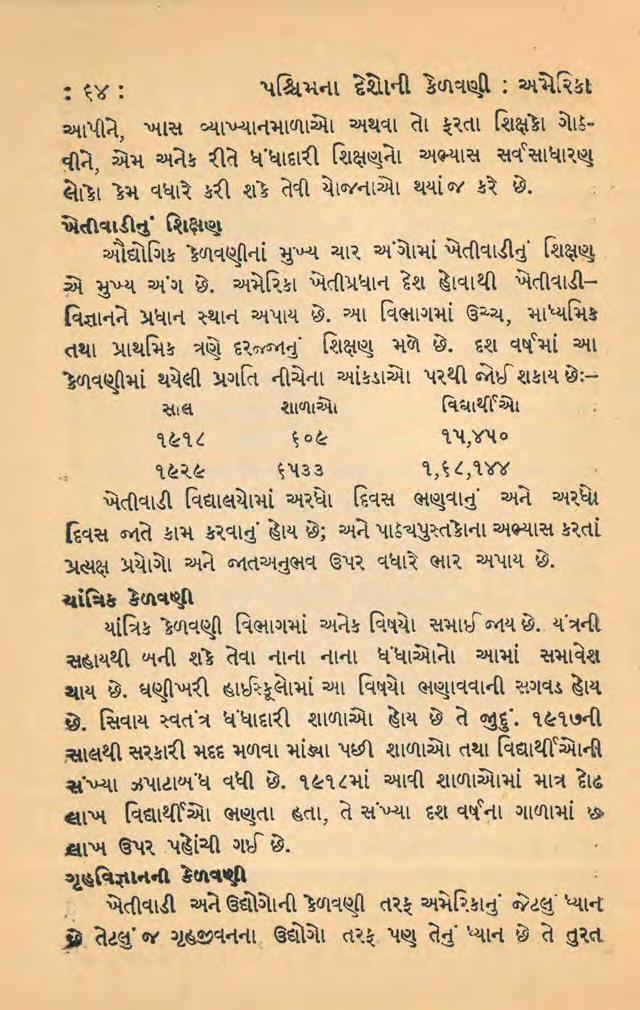 : ૬૪ : પશ્ચિમના દેશોની કેળવણી : અમેરિકા
આપીને, ખાસ વ્યાખ્યાનમાળાઓ અથવા તો ફરતા શિક્ષકો ગોઠ-
વીને, એમ અનેક રીતે ધંધાદારી શિક્ષણનો અભ્યાસ સર્વસાધારણ
લોકો કેમ વધારે કરી શકે તેવી યોજનાઓ થયાં જ કરે છે.
ખેતીવાડીનું શિક્ષણ
ઔદ્યોગિક કેળવણીનાં મુખ્ય ચાર અંગોમાં ખેતીવાડીનું શિક્ષણ
એ મુખ્ય અંગ છે. અમેરિકા ખેતીપ્રધાન દેશ હોવાથી ખેતીવાડી–
વિજ્ઞાનને પ્રધાન સ્થાન અપાય છે. આ વિભાગમાં ઉચ્ચ, માધ્યમિક
તથા પ્રાથમિક ત્રણે દરજ્જાનું શિક્ષણ મળે છે. દશ વર્ષમાં આ
કેળવણીમાં થયેલી પ્રગતિ નીચેના આંકડાઓ પરથી જોઈ શકાય છેઃ–
સાલ શાળાઓ વિદ્યાર્થીઓ
૧૯૧૮ ૬૦૯ ૧૫,૪૫૦
૧૯૨૯ ૬૫૩૩ ૧,૬૮,૧૪૪
ખેતીવાડી વિદ્યાલયોમાં અરધો દિવસ ભણવાનું અને અરધો
દિવસ જાતે કામ કરવાનું હોય છે; અને પાઠ્યપુસ્તકોના અભ્યાસ કરતાં
પ્રત્યક્ષ પ્રયોગો અને જાતઅનુભવ ઉપર વધારે ભાર અપાય છે.
યાંત્રિક કેળવણી
યાંત્રિક કેળવણી વિભાગમાં અનેક વિષયો સમાઈ જાય છે. યંત્રની
સહાયથી બની શકે તેવા નાના નાના ધંધાઓનો આમાં સમાવેશ
થાય છે. ઘણીખરી હાઈસ્કૂલોમાં આ વિષયો ભણાવવાની સગવડ હોય
છે. સિવાય સ્વતંત્ર ધંધાદારી શાળાઓ હોય છે તે જુદું. ૧૯૧૭ની
સાલથી સરકારી મદદ મળવા માંડ્યા પછી શાળાઓ તથા વિદ્યાર્થીઓની
સંખ્યા ઝપાટાબંધ વધી છે. ૧૯૧૮માં આવી શાળાઓમાં માત્ર દોઢ
લાખ વિદ્યાર્થીઓ ભણતા હતા, તે સંખ્યા દશ વર્ષના ગાળામાં છ
લાખ ઉપર પહોંચી ગઈ છે.
ગૃહવિજ્ઞાનની કેળવણી
ખેતીવાડી અને ઉદ્યોગોની કેળવણી તરફ અમેરિકાનું જેટલું ધ્યાન
છે તેટલું જ ગૃહજીવનના ઉદ્યોગો તરફ પણ તેનું ધ્યાન છે તે તુરત